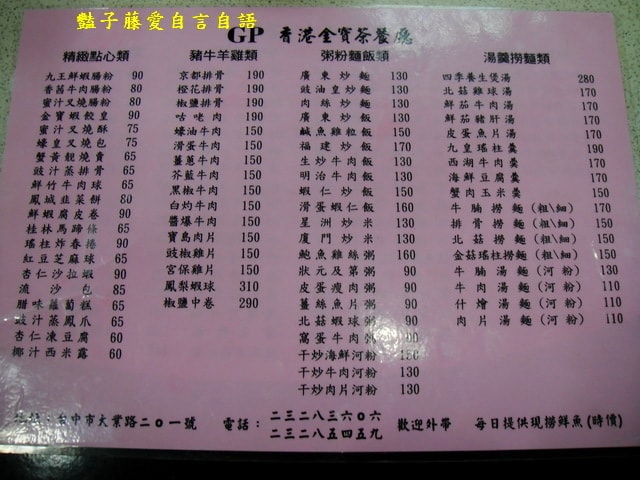 豔子藤愛自言自語
GP 香港金寶茶餐廳
精緻點心類
九王鮮蝦腸粉 90
香茜牛肉腸粉 80
蜜汁叉燒腸粉 80
金寶蝦餃皇 90
蜜汁叉燒酥 75
蠔皇叉燒包 75
蟹黃靚燒賣 65
豉汁蒸排骨 65
鮮竹牛肉球 65
鳳城韮菜餅 80
鮮蝦腐皮卷 90
桂林馬蹄條 65
瑤柱炸春捲 90
紅豆芝麻球 65
杏仁沙拉蝦 90
流沙包 85
腊味蘿蔔糕 65
豉汁蒸鳳爪 65
杏仁凍豆腐 60
椰汁西米露 60
豬牛羊雞類
京都排骨 190
橙花排骨 190
椒鹽排骨 190
咕咾肉 190
蠔油牛肉 150
滑蛋牛肉 150
薑蔥牛肉 150
芥藍牛肉 150
黑椒牛肉 150
白灼牛肉 150
醬爆牛肉 150
寶島肉片 150
豉椒雞片 150
宮保雞片 150
鳳梨蝦球 310
椒鹽中卷 290
粥粉麵飯類
廣東炒麵 130
豉油皇炒麵 130
肉絲炒麵 130
廣東炒飯 130
鹹魚雞粒飯 150
福建炒飯 170
生炒牛肉飯 130
明治牛肉飯 130
蝦仁炒飯 150
滑蛋蝦仁飯 160
星洲炒米 130
廈門炒米 130
鮑魚雞絲粥 160
狀元及第粥 90
皮蛋瘦肉粥 90
薑絲魚片粥 90
北菇蝦球粥 90
窩蛋牛肉粥 90
干炒海鮮河粉 150
干炒牛肉河粉 130
干炒肉片河粉 130
湯羹撈麵類
四季養生煲湯 280
北菇雞球湯 170
鮮茄牛肉湯 170
鮮茄豬肝湯 170
皮蛋魚片湯 170
九皇瑤柱羹 170
西湖牛肉羹 170
海鮮豆腐羹 170
蟹肉玉米羹 150
牛腩撈麵(粗\細) 170
排骨撈麵(粗\細) 150
北菇撈麵(粗\細) 150
金菇瑤柱撈麵(粗\細) 150
牛腩湯麵(河粉) 110
牛肉湯麵(河粉) 110
什燴湯麵(河粉) 110
肉片湯麵(河粉) 110
台中市大業路二0一號 電話:二三二八三六0六 二三二八五四五九 歡迎外帶 每日提供現撈鮮魚(時價)